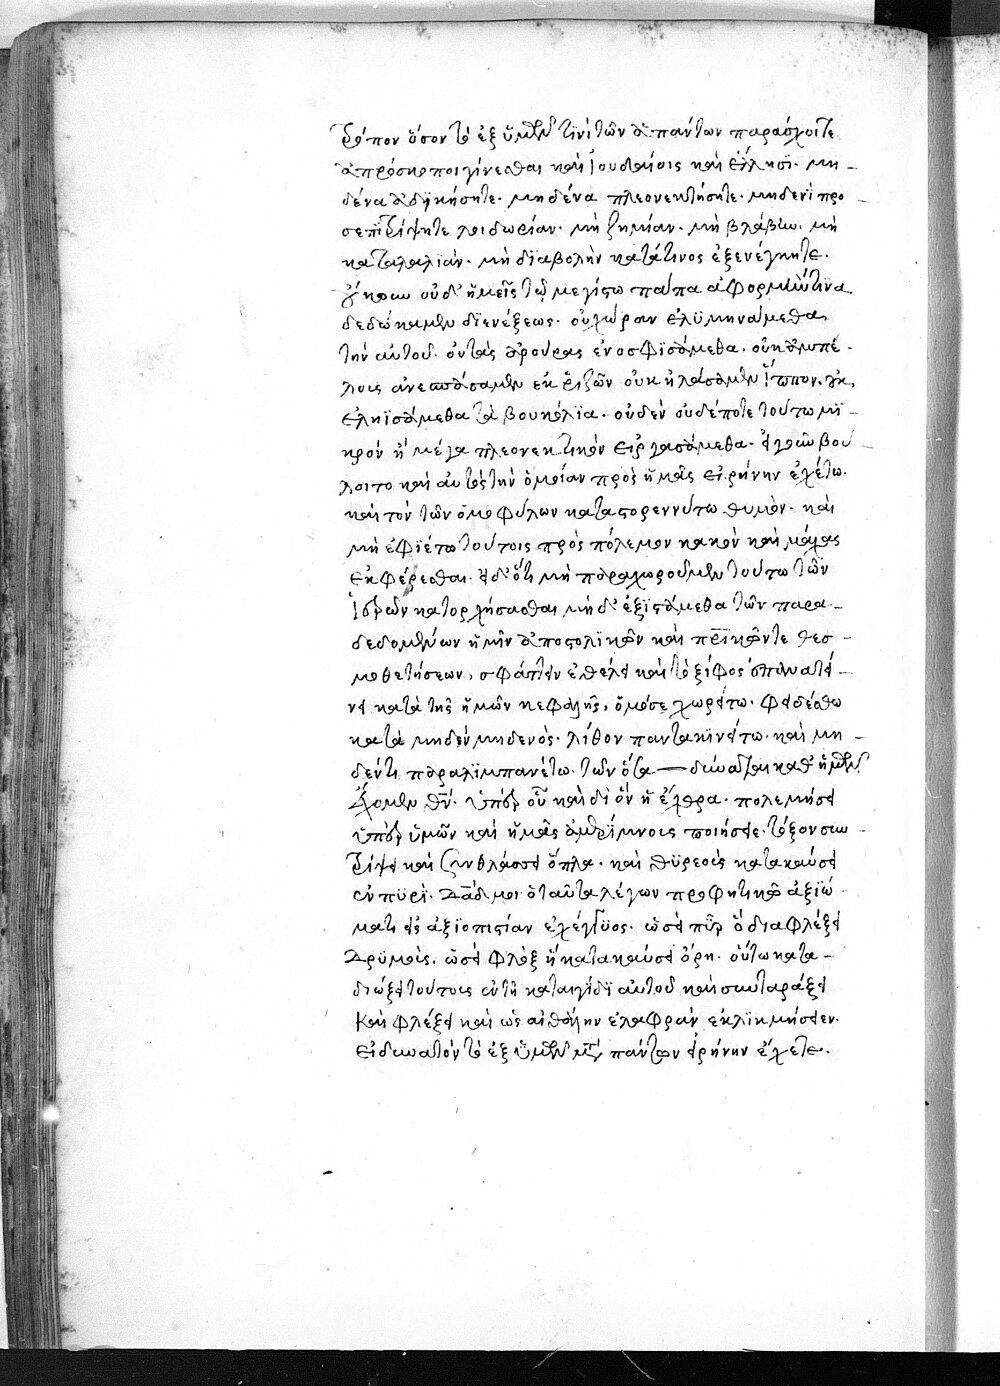 τρόπον ὅσον τὸ ἐξ ὑμῶν τινὶ τῶν ἁπάντων παράσχοιτε
ἀπρόσκοποι γίνεσθαι καὶ Ἰουδαίοις καὶ ἕλλησϊ. μη-
δένα ἀδϊκήσητε. μηδένα πλεονεκτήσητε. μηδενὶ προ-
σεπιτρίψητε λοιδωρίαν. μὴ ζημίαν. μὴ βλάβην. μὴ
καταλαλιὰν. μὴ διαβολὴν κατάτινος ἐξενέγκητε.
οὐδ' ἡμεῖς τῷ μεγίστω πάπα ἀφορμὴν τινα
δεδώκαμεν διενέξεως. οὐ χώραν ἐλϋμηνάμεθα
τὴν αὐτοῦ. οὐ τὰς ἀρούρας ἐνοσφϊσάμεθα. οὐκ ἀμπέ-
λους ἀνεσπάσαμεν ἐκ ῥιζῶν οὐκ ἠλάσαμεν ἵππον. οὐκ
ἐληϊσάμεθα τὰ βουκόλϊα. οὐδὲν οὐδέποτε τούτω μϊ-
κρόν ἢ μέγα πλεονεκτικὸν εἰργασάμεθα. βού-
λοιτο καὶ αὐτὸς τὴν ὁμοίαν πρὸς ἡμᾶς εἰρήνην ἐχέτω.
καὶ τὸν τῶν ὁμοφύλων καταστορεννύτω θυμὸν. καὶ
μὴ ἐφιέτω τούτοις πρὸς πόλεμον κακὸν καὶ μάχας
ἐκφέρεσθαι. εἰ δ' ὅτι μὴ παραχωροῦμεν τούτω τῶν
ἱερῶν κατορχήσασθαι μὴ δ' ἐξϊστάμεθα τῶν παρα-
δεδομένων ἡμῖν ἀποστολϊκῶν καὶ πρϊκῶντε θεσ-
μοθετήσεων, σφάττειν ἐθέλει καὶ τὸ ξίφος ἐπανατεί-
νει κατὰ τῆς ἡμῶν κεφαλῆς, ὁμόσε χωρείτω. φειδέσθω
κατὰ μηδὲν μηδενὸς. λίθον πάντα κινείτω. καὶ μη-
δέντι παραλϊμπανέτω. τῶν ὅσα — δύναται καθ' ἡμῶν
ἔχομεν θν. ὑπὲρ οὗ καὶ δι' ὃν ἡ ἔχθρα. πολεμήσει
ὑπὲρ ἡμῶν καὶ ἡμᾶς ἀμερίμνους ποιήσει. τόξον συν-
τρίψει καὶ συνθλάσσει ὅπλα. καὶ θϋρεοὺς κατακαύσει
ἐν πϋρὶ. Δᾱδ μοι ὁ ταῦτα λέγων προφητικῶ ἀξϊώ-
ματι εἰς ἀξϊοπιστίαν ἐχέγγϋος. ὡσεὶ πῦρ ὃ διαφλέξει
δρϋμοὺς. ὡσεὶ φλὸξ ἣ κατακαύσει ὄρη. οὕτω κατα-
διώξει τούτους ἐν τῆ καταιγίδϊ αὐτοῦ καὶ συνταράξει
καὶ φλέξει καὶ ὡς αἰθάλην ἐλαφρὰν ἐκλϊκμήσειεν.
εἰ δυνατόν τὸ ἐξ ὑμῶν μετὰ πάντων εἰρήνην ἔχετε.